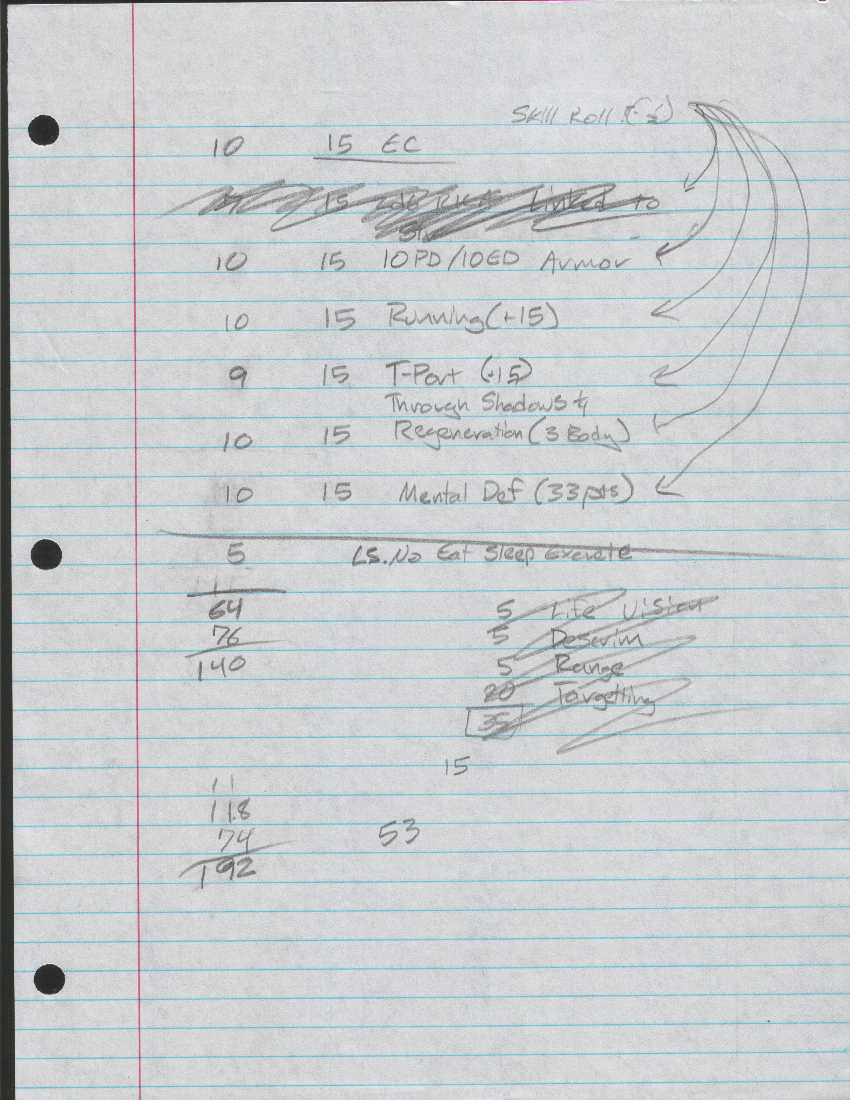 Skill Roll (-½)
10 15 EC
15 Linked to
10 15 10PD/10ED Armor
10 15 Running (+15)
9 15 T-Port (+15)
Through Shadows
10 15 Regeneration (3 Body)
10 15 Mental Def (33 pts)
5 LS. No Eat Sleep Excrete
64 5 Life Vision
76 5 Descrim
140 5 Range
20 Targetting
35
15
11
118
74 53
192